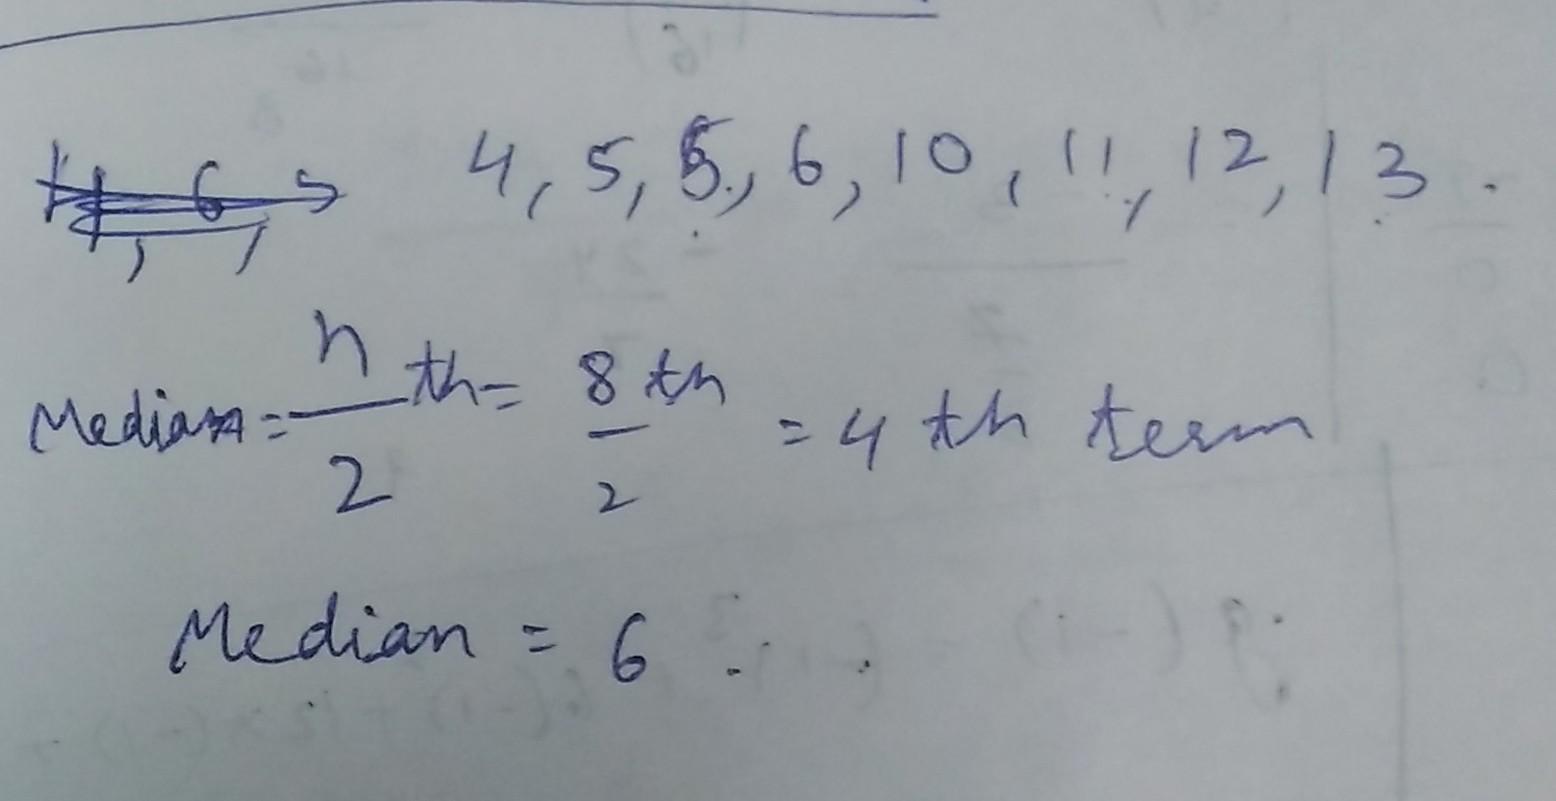 4, 5, 5, 6, 10, 11, 12, 13.
Median = n/2 th = 8/2 th = 4 th term
Median = 6.